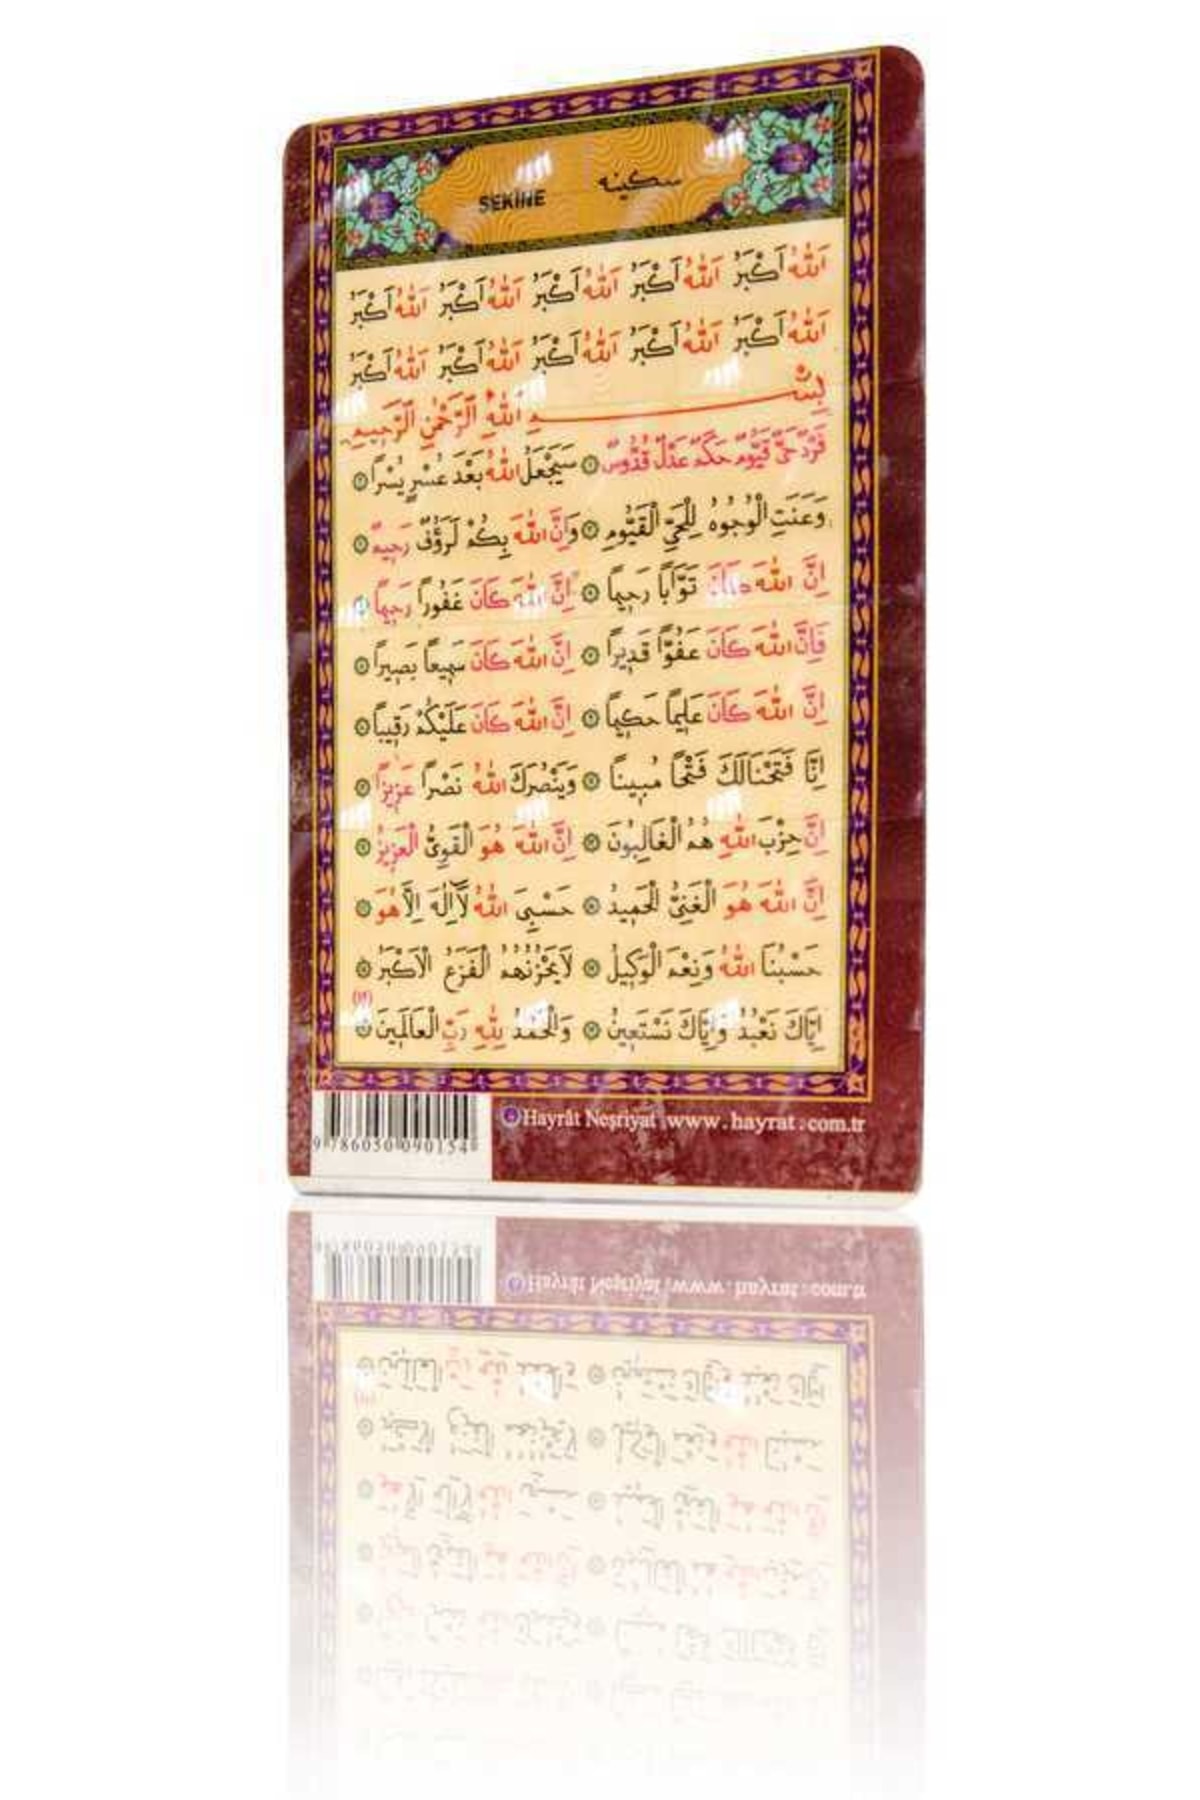 SEKİNE سكينه
اَللّٰهُ اَكْبَرُ اَللّٰهُ اَكْبَرُ اَللّٰهُ اَكْبَرُ اَللّٰهُ اَكْبَرُ اَللّٰهُ اَكْبَرُ
اَللّٰهُ اَكْبَرُ اَللّٰهُ اَكْبَرُ اَللّٰهُ اَكْبَرُ اَللّٰهُ اَكْبَرُ اَللّٰهُ اَكْبَرُ
بِسْمِ اللّٰهِ الرَّحْمٰنِ الرَّحِيمِ
فَرْدٌ حَىٌّ قَيُّومٌ حَكَمٌ عَدْلٌ قُدُّوسٌ ۞ سَيَجْعَلُ اللّٰهُ بَعْدَ عُسْرٍ يُسْرًا ۞
وَعَنَتِ الْوُجُوهُ لِلْحَىِّ الْقَيُّومِ ۞ وَاِنَّ اللّٰهَ بِكُمْ لَرَؤُفٌ رَحِيمٌ ۞
اِنَّ اللّٰهَ كَانَ تَوَّابًا رَحِيمًا ۞ اِنَّ اللّٰهَ كَانَ غَفُورًا رَحِيمًا ۞
فَاِنَّ اللّٰهَ كَانَ عَفُوًّا قَدِيرًا ۞ اِنَّ اللّٰهَ كَانَ سَمِيعًا بَصِيرًا ۞
اِنَّ اللّٰهَ كَانَ عَلِيمًا حَكِيمًا ۞ اِنَّ اللّٰهَ كَانَ عَلَيْكُمْ رَقِيبًا ۞
اِنَّا فَتَحْنَا لَكَ فَتْحًا مُبِينًا ۞ وَيَنْصُرَكَ اللّٰهُ نَصْرًا عَزِيزًا ۞
اِنَّ حِزْبَ اللّٰهِ هُمُ الْغَالِبُونَ ۞ اِنَّ اللّٰهَ هُوَ الْقَوِىُّ الْعَزِيزُ ۞
اِنَّ اللّٰهَ هُوَ الْغَنِىُّ الْحَمِيدُ ۞ حَسْبِىَ اللّٰهُ لَٓا اِلٰهَ اِلَّا هُوَ ۞
حَسْبُنَا اللّٰهُ وَنِعْمَ الْوَكِيلُ ۞ لَا يَحْزُنُهُمُ الْفَزَعُ الْاَكْبَرُ ۞
اِيَّاكَ نَعْبُدُ وَاِيَّاكَ نَسْتَعِينُ ۞ وَالْحَمْدُ لِلّٰهِ رَبِّ الْعَالَمِينَ ۞ (١٩)
Hayrât Neşriyat www.hayrat.com.tr
9 786050 090154